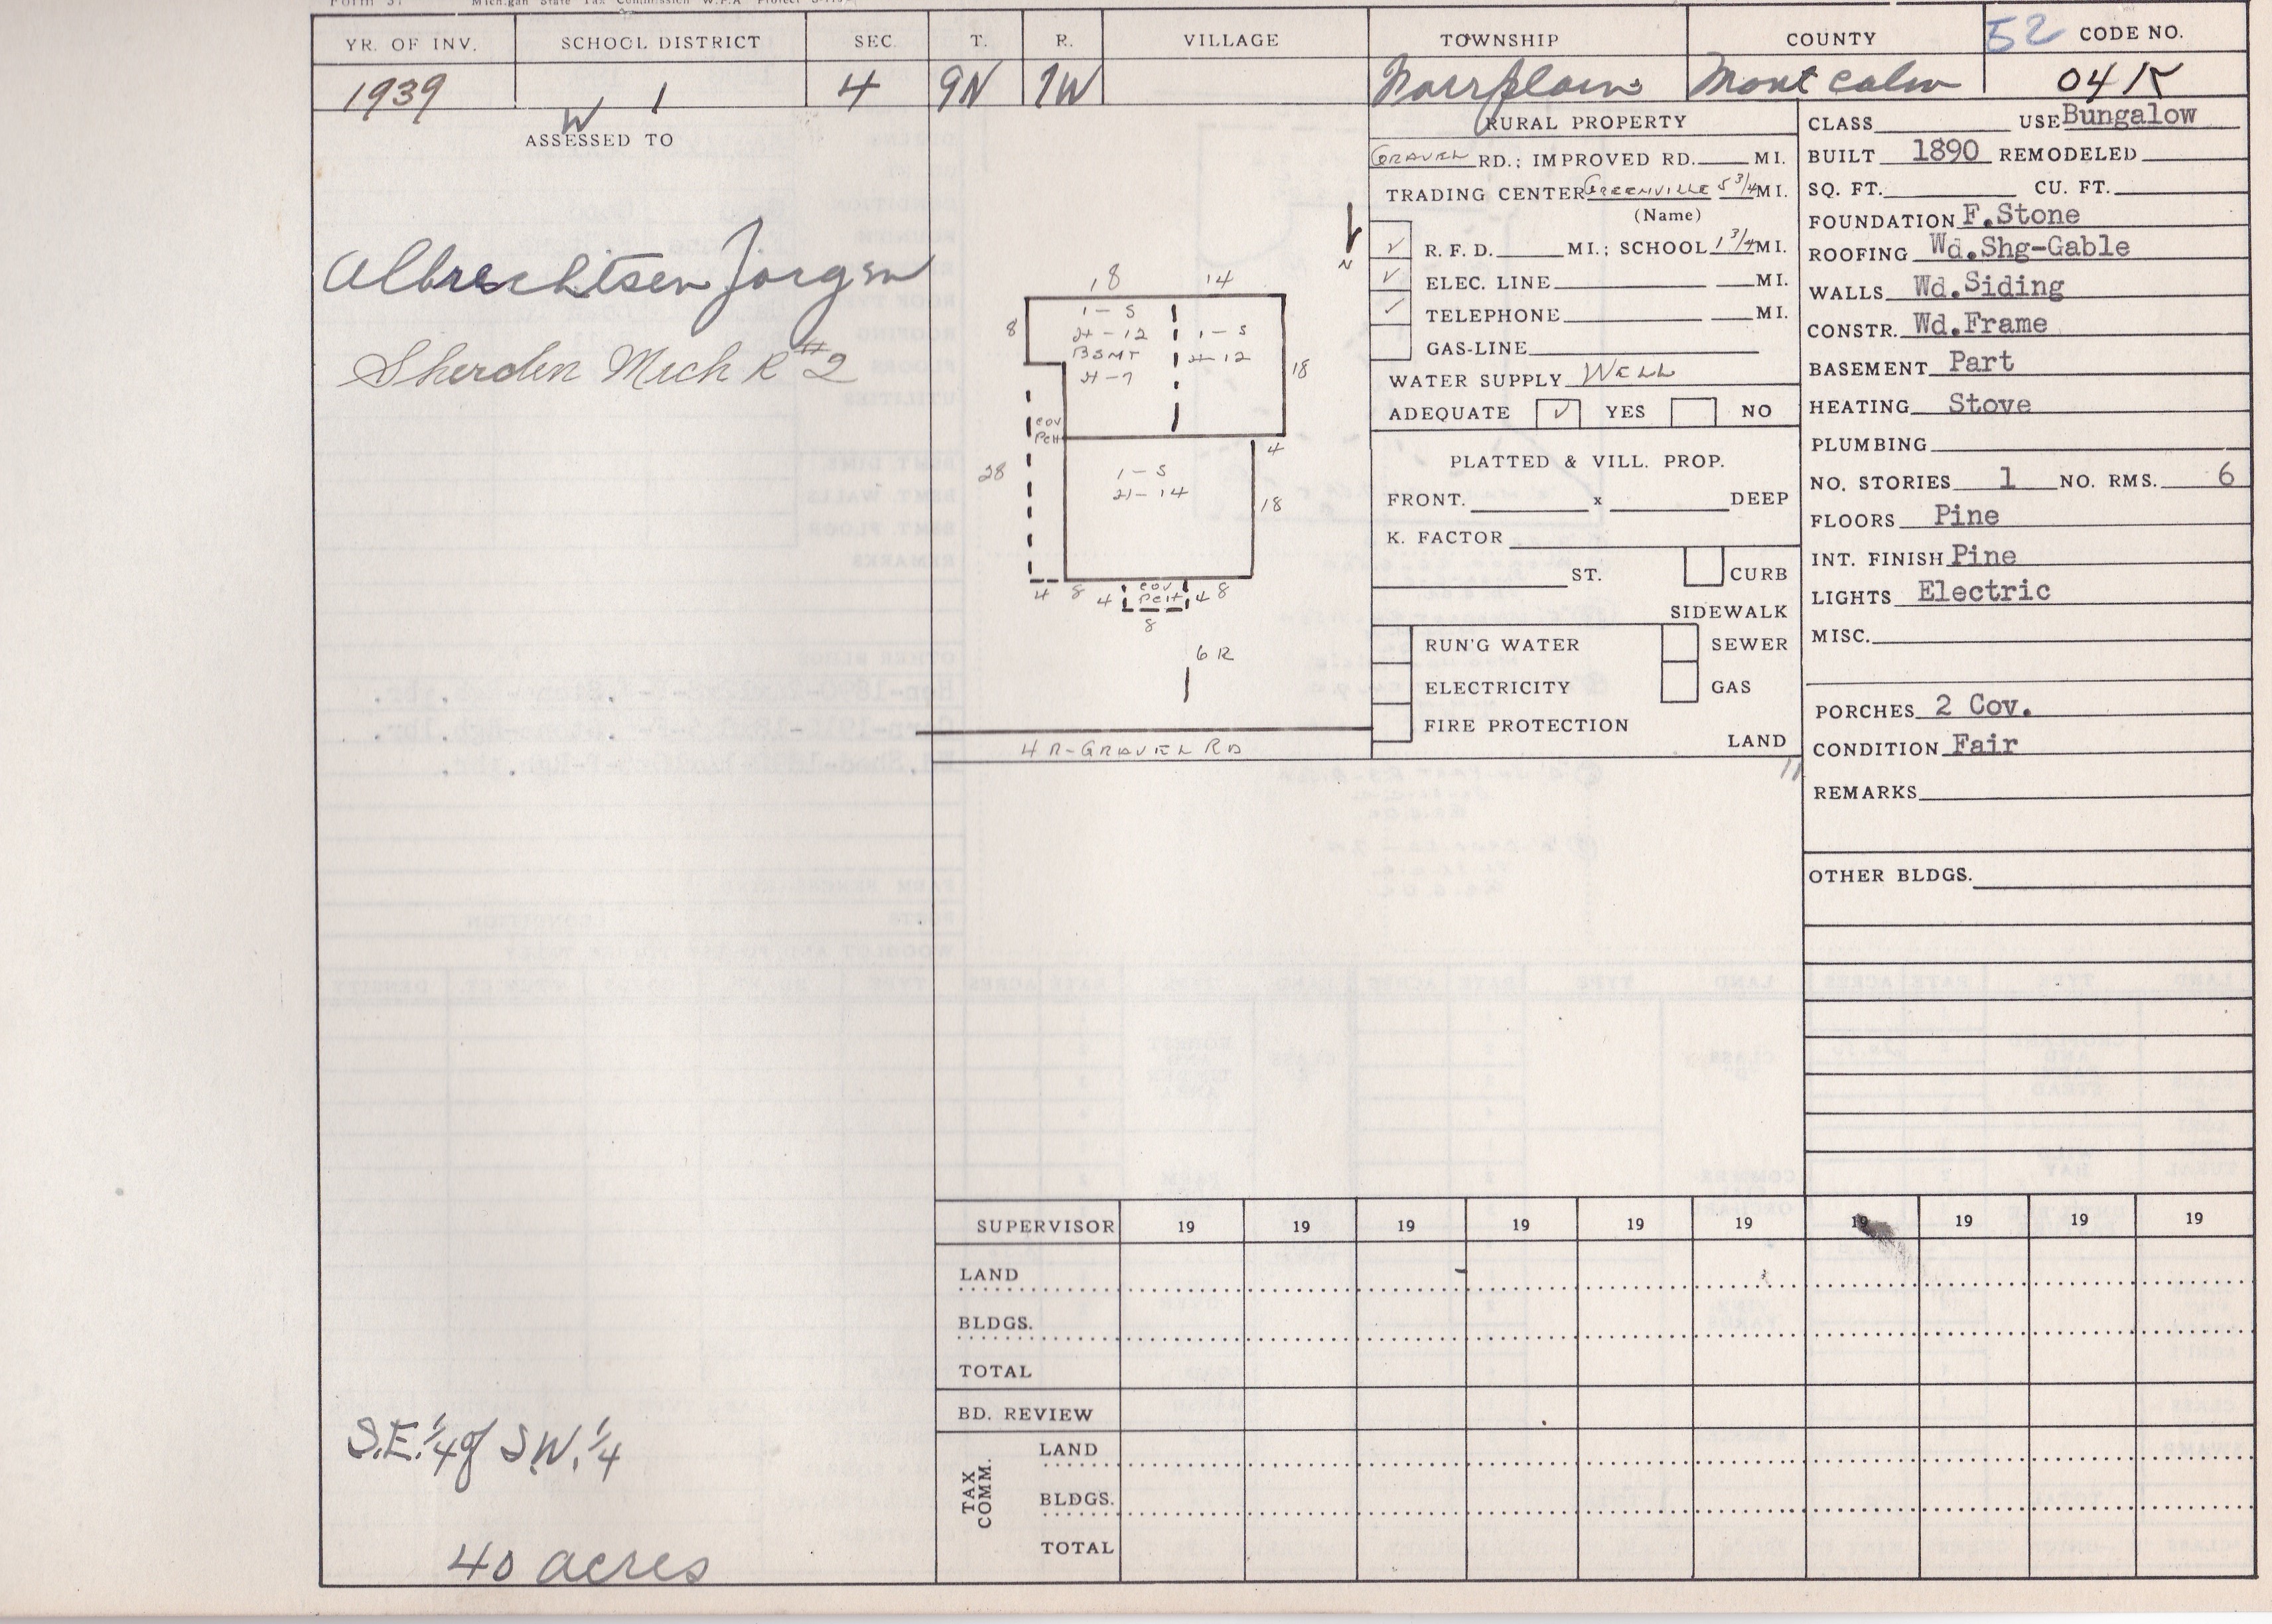 Form 37 Michigan State Tax Commission W.P.A Project
YR. OF INV. SCHOOL DISTRICT SEC. T. R. VILLAGE TOWNSHIP COUNTY 52 CODE NO.
1939 W 1 4 9N 7W Fairplain Montcalm 04K
ASSESSED TO
Albrechtsen Jorgen
Sheriden Mich R #2
S.E. 1/4 of S.W. 1/4
40 acres
18 14
8
1 - S
2+ - 12
BSMT
2+ - 7
1 - S
2+ - 12
18
COV
PCH
4
28
1 - S
2+ - 14
18
4 8 4 COV PCH 4 8
8
N
6 R
4 R - GRAVEL RD
RURAL PROPERTY
GRAVEL RD.; IMPROVED RD. MI.
TRADING CENTER GREENVILLE 5 3/4 MI.
(Name)
✓ R. F. D. MI.; SCHOOL 1 3/4 MI.
✓ ELEC. LINE MI.
✓ TELEPHONE MI.
GAS-LINE
WATER SUPPLY WELL
ADEQUATE ✓ YES NO
PLATTED & VILL. PROP.
FRONT. x DEEP
K. FACTOR
ST. CURB
SIDEWALK
RUN'G WATER SEWER
ELECTRICITY GAS
FIRE PROTECTION
LAND
CLASS USE Bungalow
BUILT 1890 REMODELED
SQ. FT. CU. FT.
FOUNDATION F.Stone
ROOFING Wd.Shg-Gable
WALLS Wd.Siding
CONSTR. Wd.Frame
BASEMENT Part
HEATING Stove
PLUMBING
NO. STORIES 1 NO. RMS. 6
FLOORS Pine
INT. FINISH Pine
LIGHTS Electric
MISC.
PORCHES 2 Cov.
CONDITION Fair
REMARKS
OTHER BLDGS.
SUPERVISOR 19 19 19 19 19 19 19 19 19 19
LAND
BLDGS.
TOTAL
BD. REVIEW
TAX COMM.
LAND
BLDGS.
TOTAL